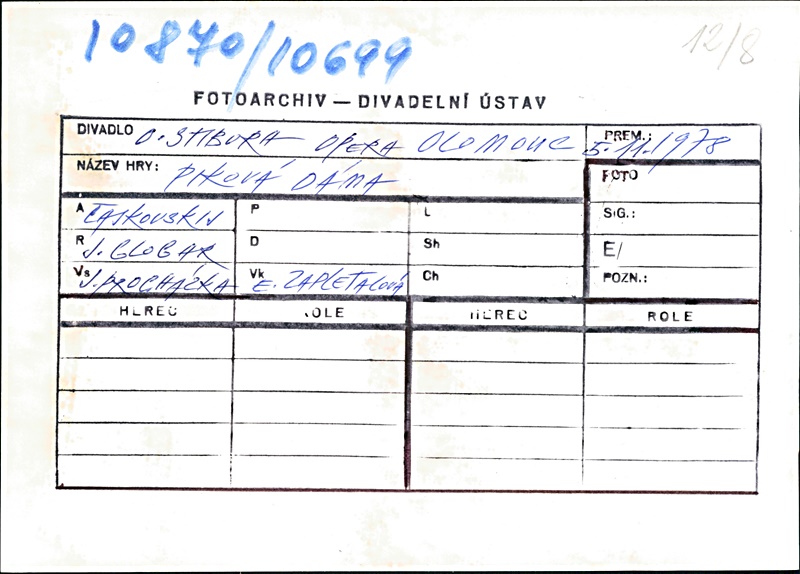 10870/10699
12/8
FOTOARCHIV — DIVADELNÍ ÚSTAV
DIVADLO O. STIBORA OPERA OLOMOUC PREM.: 5.11.1978
NÁZEV HRY: PIKOVÁ DÁMA FOTO
A ČAJKOVSKIJ P L SIG.:
R J. GLOGAR D Sh E/
Vs J. PROCHÁZKA Vk E. ZAPLETALOVÁ Ch POZN.:
HEREC ROLE HEREC ROLE